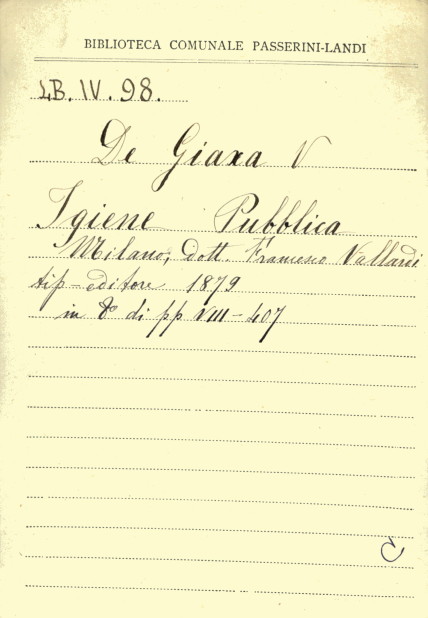 BIBLIOTECA COMUNALE PASSERINI-LANDI
4B. IV. 98.
De Giaxa V
Igiene Pubblica
Milano, dott. Francesco Vallardi
tip-editore 1879
in 8° di pp VIII-407
C